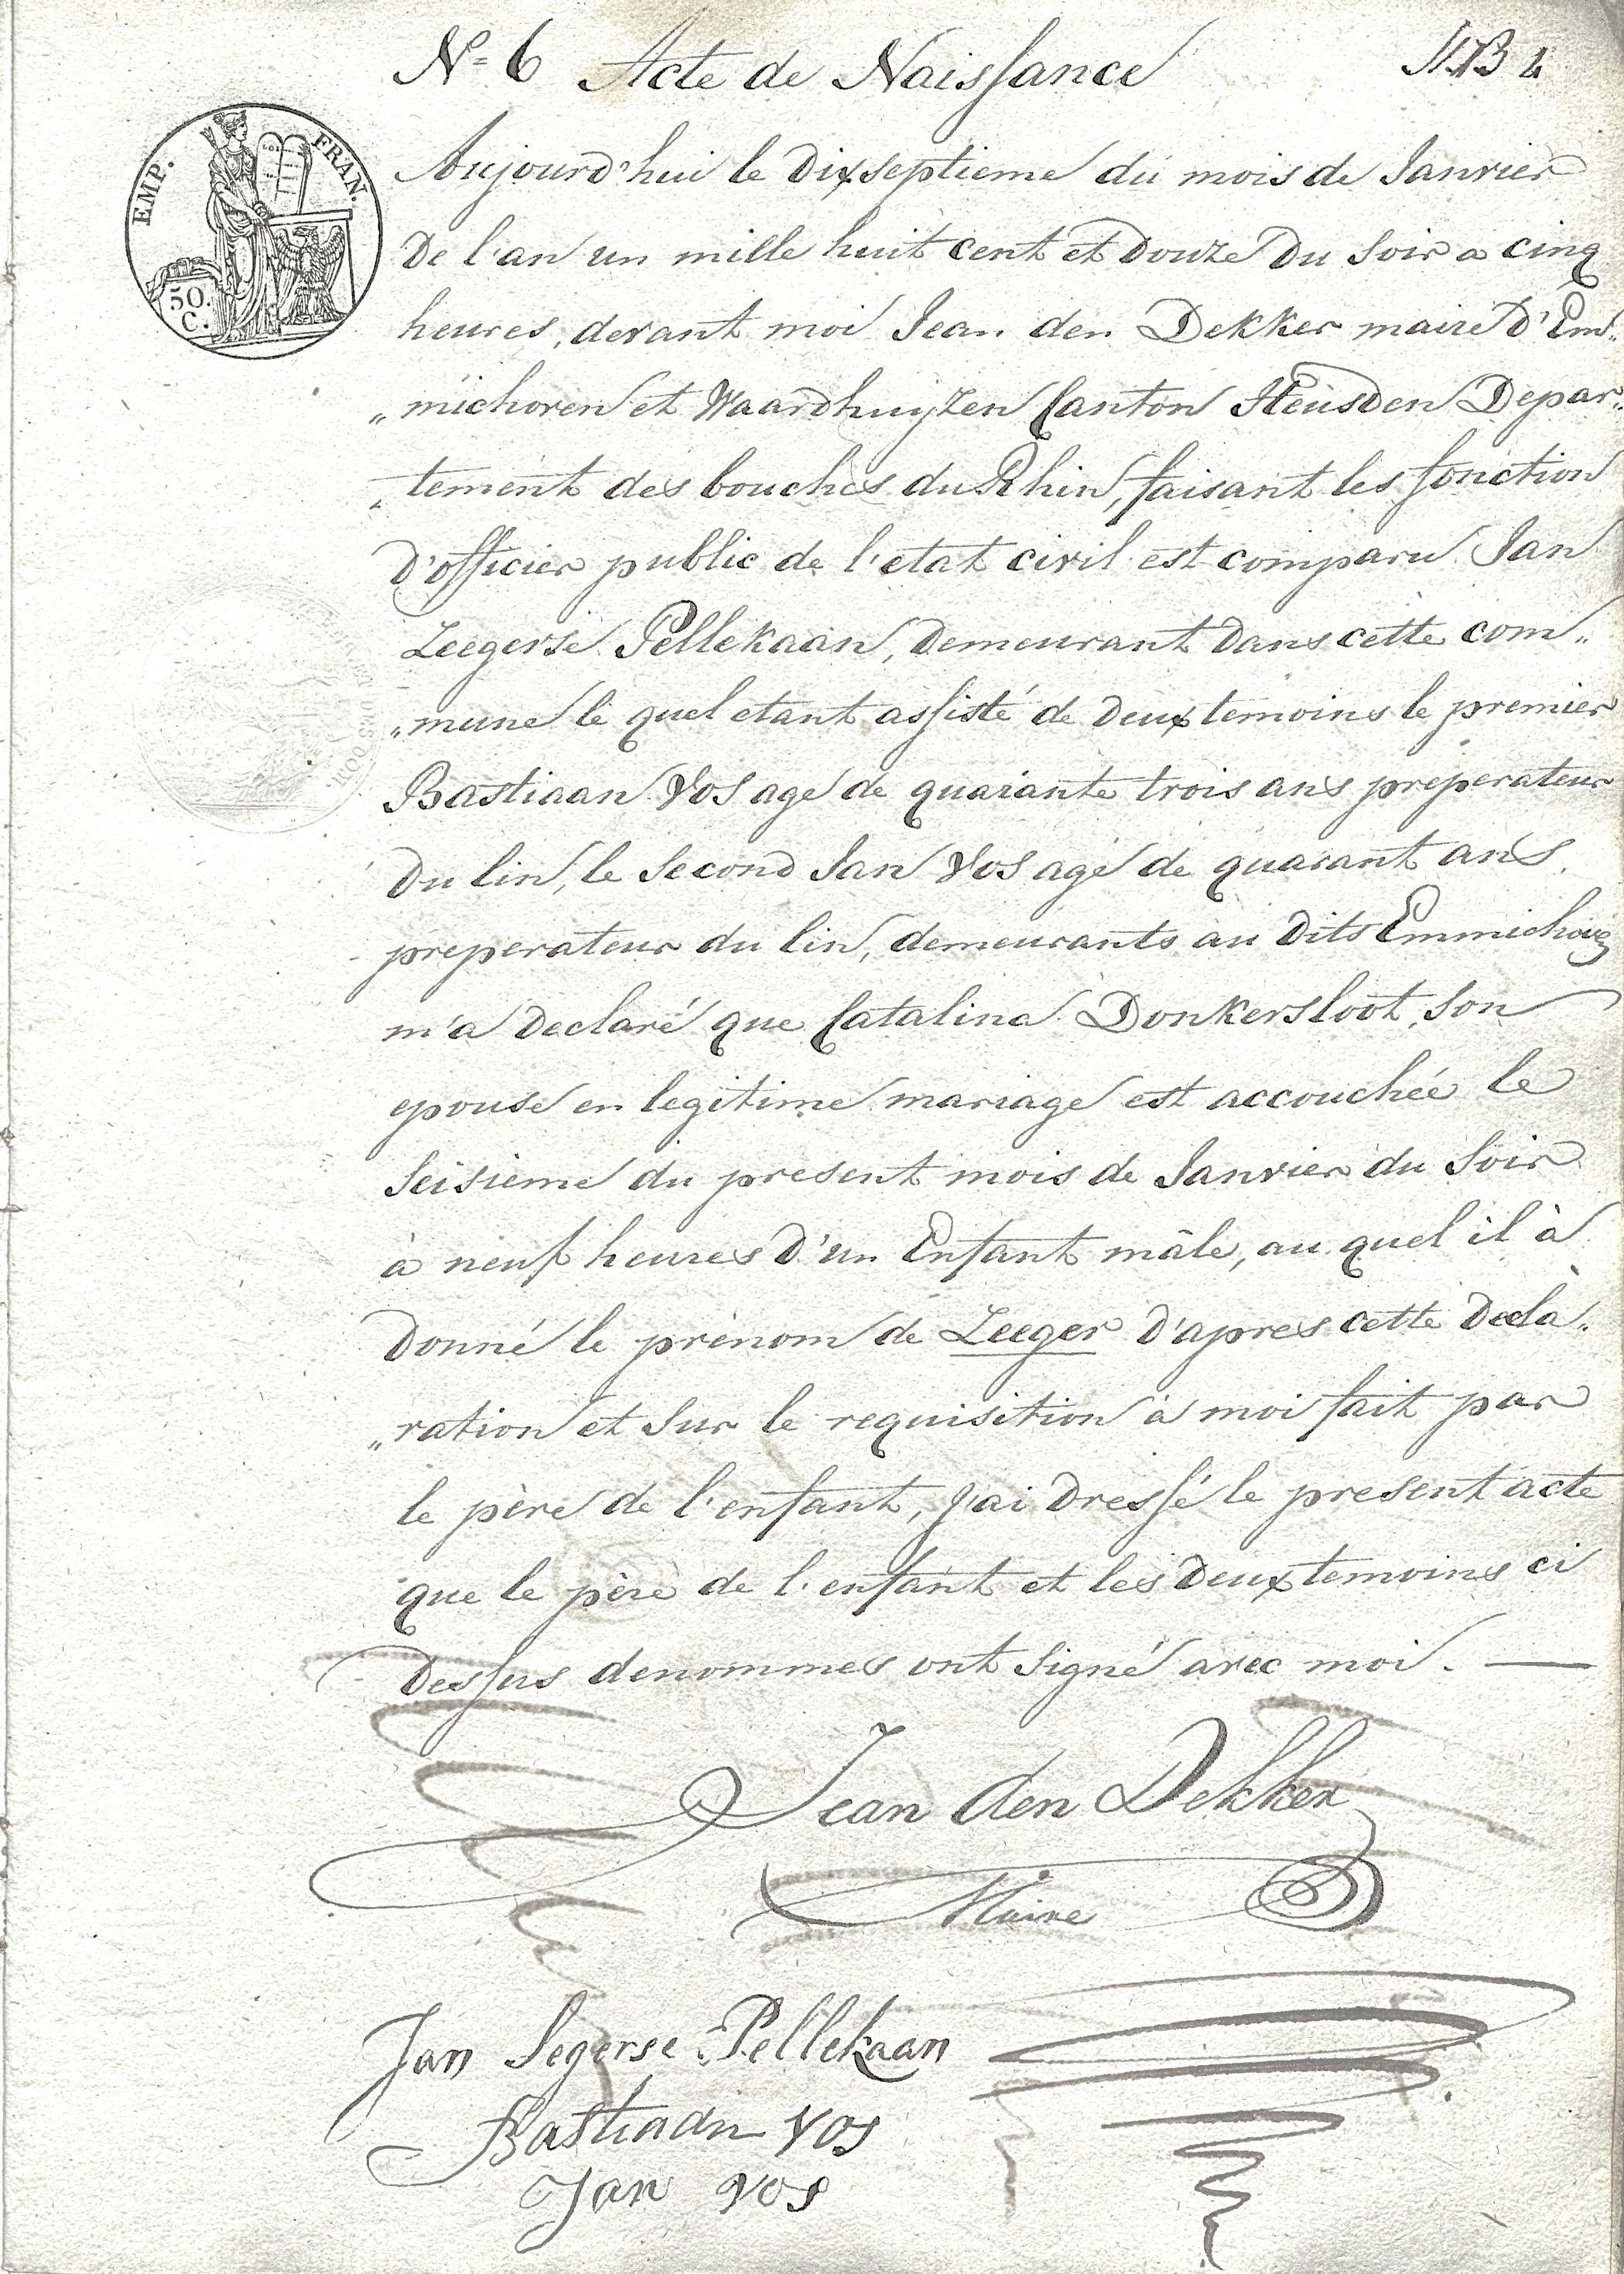 N= 6 Acte de Naissance
EMP. FRAN.
50.
C.
Aujourd'hui le dixseptieme du mois de Janvier
De l'an un mille huit cent et douze du soir a cinq
heures, devant moi Jean den Dekker maire d'Em„
„michoven et Waardhuijzen Canton Heusden Depar„
„tement des bouches du Rhin, faisant les fonction
d'officier public de l'etat civil est comparu Jan
Zeegerse Pellekaan, demeurant dans cette com„
„mune le quel etant assisté de deux temoins le premier
Bastiaan Vos age de quarante trois ans preperateur
du lin, le second Jan Vos agé de quarant ans
preperateur du lin, demeurants au dits Emmichoven
m'a declaré que Catalina Donkersloot, son
epouse en legitime mariage est accouchée le
seisieme du present mois de Janvier du soir
à neuf heures d'un Enfant mâle, au quel il à
donné le prénom de Zeeger d'apres cette decla„
„ration et sur le requisition à moi fait par
le père de l'enfant, j'ai dressé le present acte
que le père de l'enfant et les deux temoins ci
dessus denommes ont signé avec moi. —
Jean den Dekker
Maire
Jan Segerse Pellekaan
Bastiaan Vos
Jan Vos